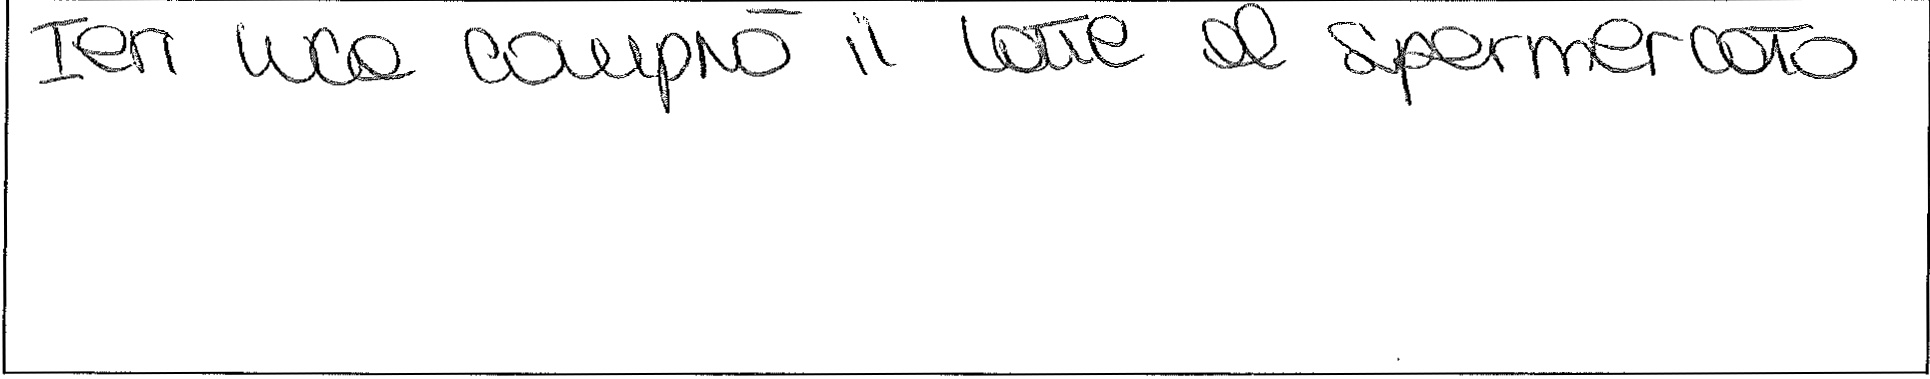 Ieri luca comprò il latte al spermercato